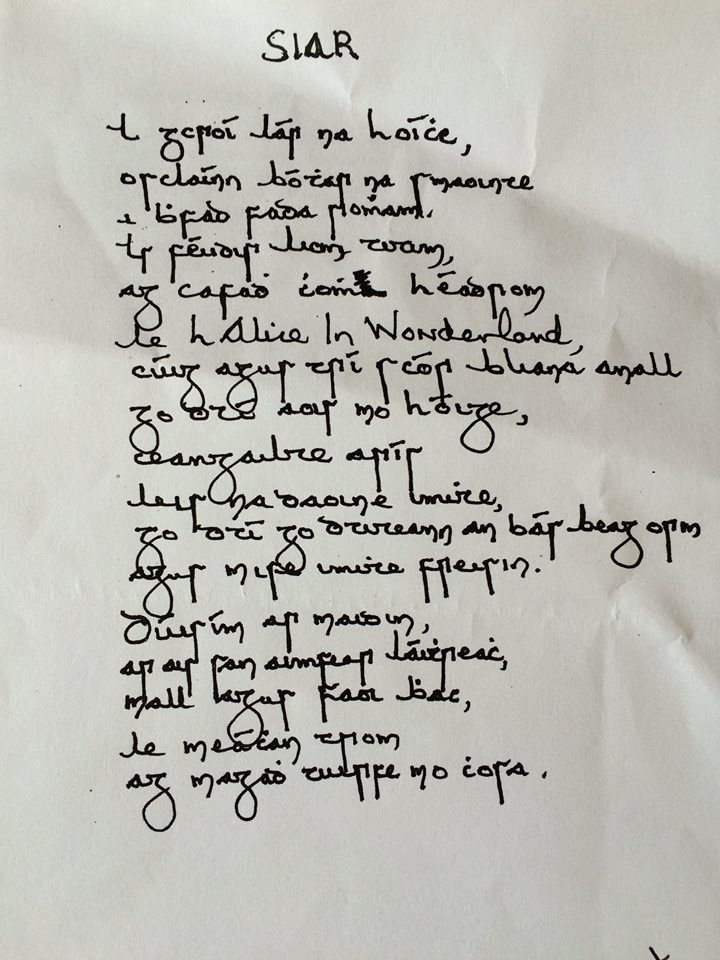 SIAR
I gcroí lár na hoíċe,
osclaínn bóṫar na smaointe
i ḃfad fada roṁam.
Is féidir liom titim,
ag casaḋ ċoṁ héadrom
le hAlice In Wonderland,
cúig agus trí scór bliana anall
go dtí aois mo hóige,
ceangailte arís
leis na daoine imiṫe,
go dtí go dtiteann an bás beag orm
agus mise imiṫe freisin.
Dúisím ar maidin,
ar ais san aimsear láiṫreaċ,
mall agus faoi ḃac,
le meáċan trom
ag magaḋ tuirse mo ċosa.